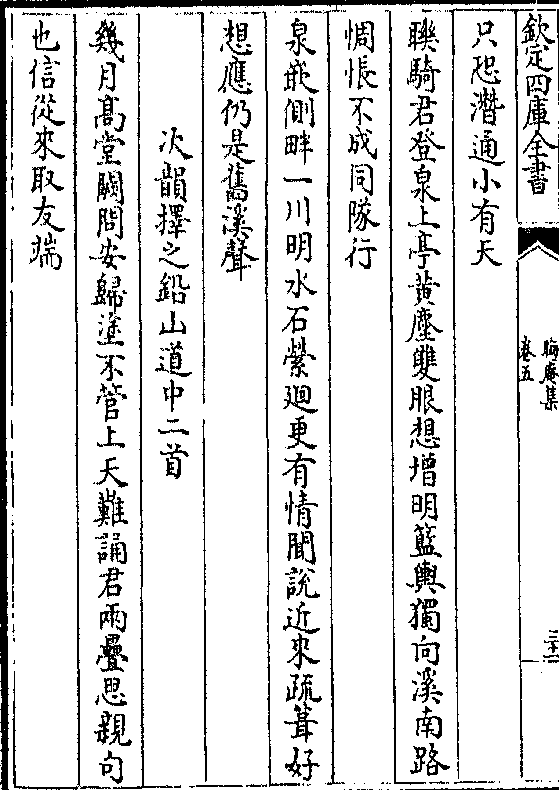 欽定四庫全書
晦庵集
卷五
三十一
只恐潛通小有天
聨騎君登泉上亭黄塵雙眼想増明籃輿獨向溪南路
惆悵不成同隊行
泉嵌側畔一川明水石縈廻更有情聞說近來疏葺好
想應仍是舊溪聲
次韻擇之鉛山道中二首
幾月髙堂闕問安歸塗不管上天難誦君兩疊思親句
也信從來取友端